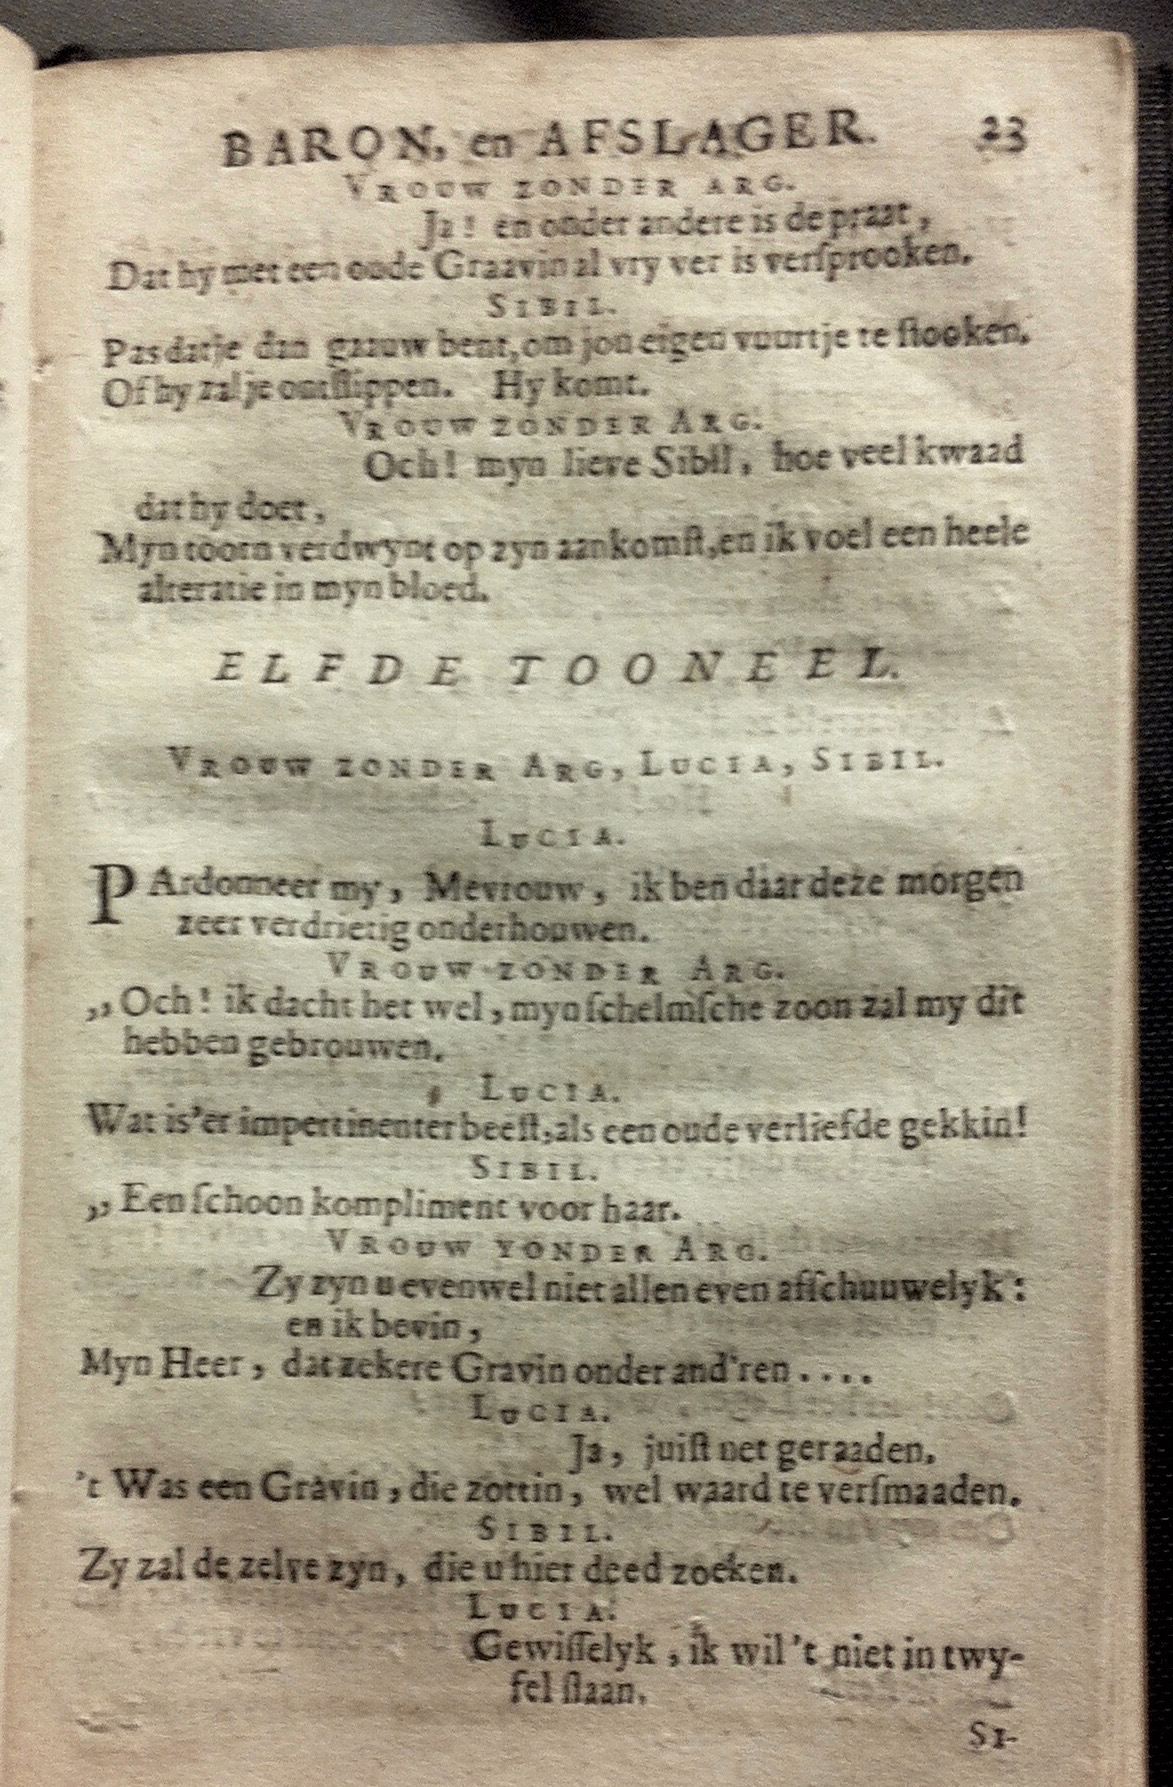 BARON, en AFSLAGER. 23
VROUW ZONDER ARG.
Ja! en onder andere is de praat,
Dat hy met een oude Graavin al vry ver is verſprooken.
SIBIL.
Pas datje dan gaauw bent, om jou eigen vuurtje te ſtooken.
Of hy zal je ontſlippen. Hy komt.
VROUW ZONDER ARG.
Och! myn lieve Sibil, hoe veel kwaad
dat hy doet,
Myn toorn verdwynt op zyn aankomſt, en ik voel een heele
alteratie in myn bloed.
ELFDE TOONEEL.
VROUW ZONDER ARG, LUCIA, SIBIL.
LUCIA.
PArdonneer my, Mevrouw, ik ben daar deze morgen
zeer verdrietig onderhouwen.
VROUW ZONDER ARG.
,,Och! ik dacht het wel, myn ſchelmſche zoon zal my dit
hebben gebrouwen.
LUCIA.
Wat is'er impertinenter beeſt, als een oude verliefde gekkin!
SIBIL.
,,Een ſchoon kompliment voor haar.
VROUW YONDER ARG.
Zy zyn u evenwel niet allen even afſchuuwelyk:
en ik bevin,
Myn Heer, dat zekere Gravin onder and'ren....
LUCIA.
Ja, juiſt net geraaden.
't Was een Gravin, die zottin, wel waard te verſmaaden.
SIBIL.
Zy zal de zelve zyn, die u hier deed zoeken.
LUCIA.
Gewiſſelyk, ik wil 't niet in twy-
fel ſlaan.
SI-